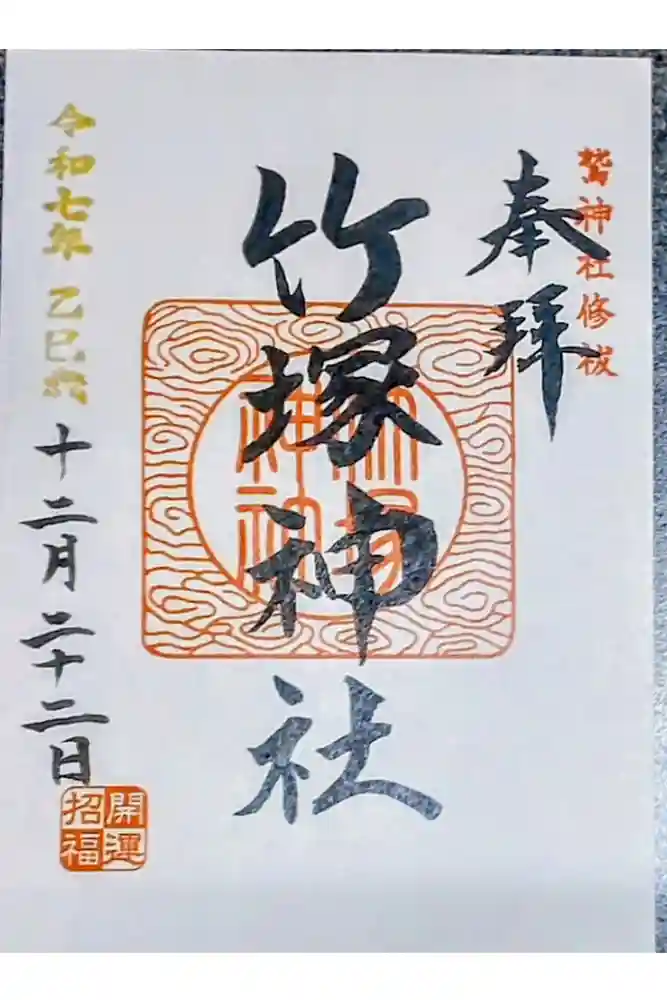 鷲神社修祓
奉拝
竹塚神社
竹塚神社
令和七年 乙巳 六
十二月二十二日
開運招福